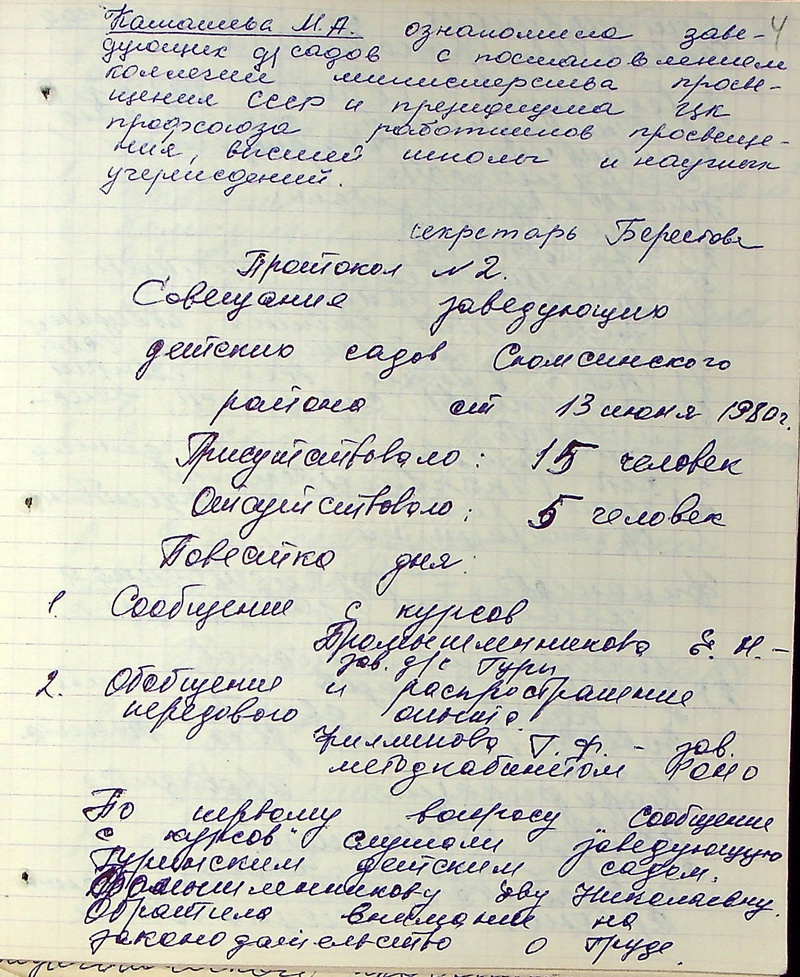 4
Камашева М.А. ознакомила заве-
дующих д/садов с постановлением
коллегии министерства просве-
щения СССР и президиума ЦК
профсоюза работников просвеще-
ния, высшей школы и научных
учреждений.
секретарь Берестова
Протокол №2.
Совещания заведующих
детских садов Сюмсинского
района от 13 июня 1980г.
Присутствовало: 15 человек
Отсутствовало: 5 человек
Повестка дня:
1. Сообщение с курсов
Промышленникова Е. Н. -
зав. д/с Гури
2. Обобщение и распространение
передового опыта.
Т. Ф. - зав.
методкабинетом РОНО
По первому вопросу "Сообщение
с курсов" слушали заведующую
Гуринским детским садом.
Промышленникову Еву Николаевну.
Обратила внимание на
законодательство о труде.